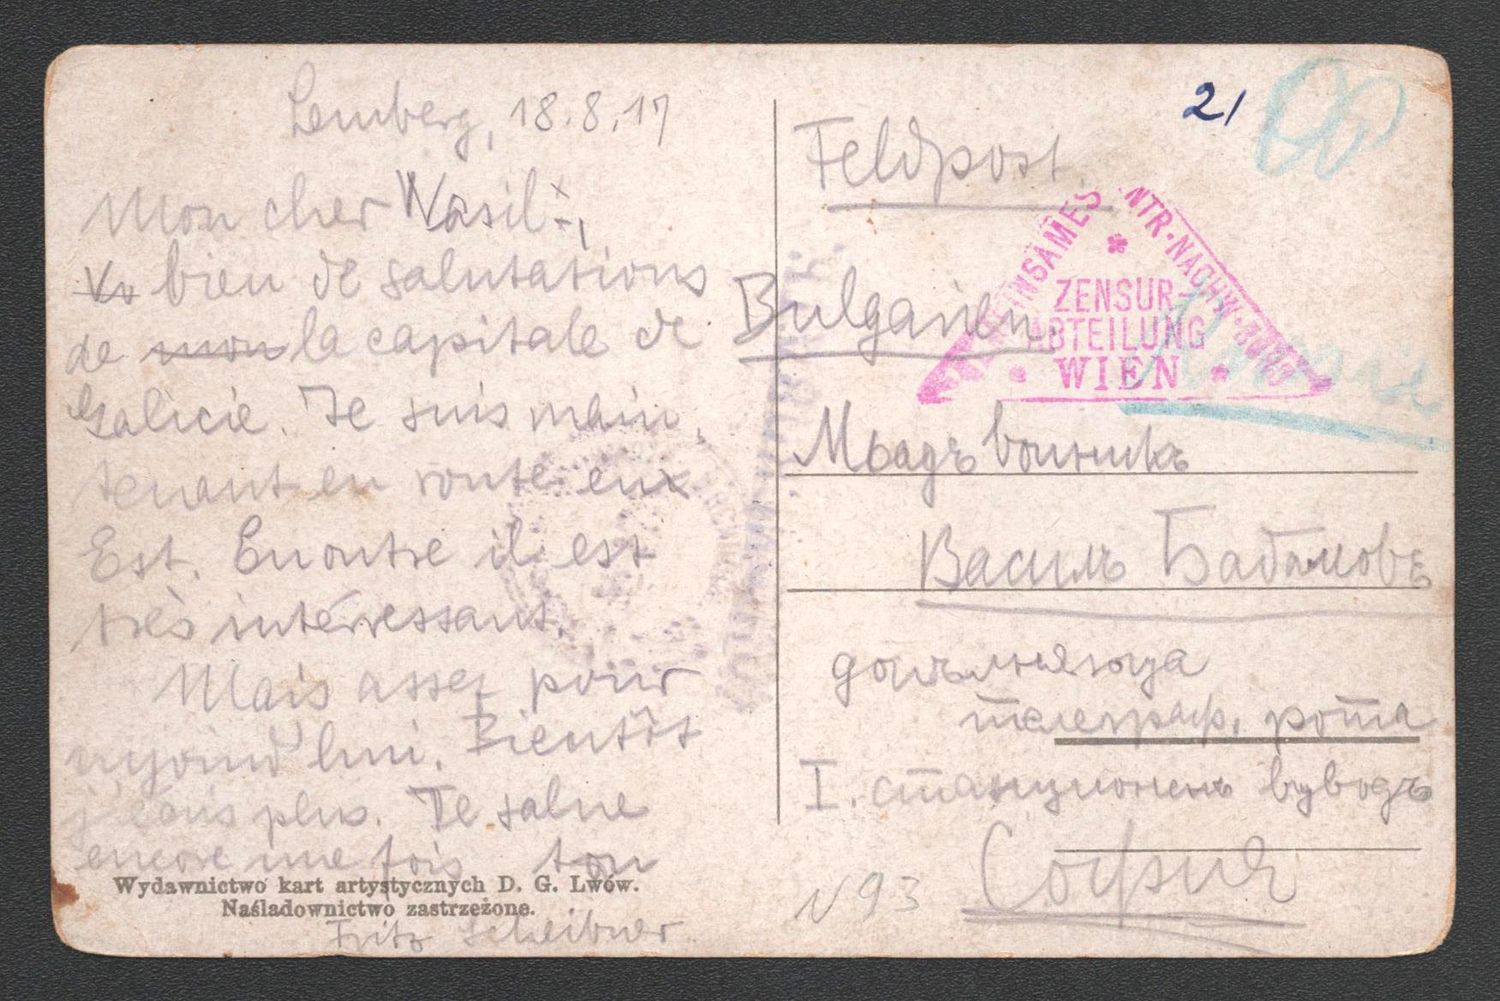 Lemberg, 18.8.17
Mon cher Wasil,
bien de salutations
de mon la capitale de
Galicie. Je suis main
tenant en route
Est. Enoutre il est
très intérressant.
Mais assez pour
Bientôt
plus. Te salue
encore une fois ton
Wydawnictwo kart artystycznych D. G. Lwów.
Naśladownictwo zastrzeżone.
Fritz Scheibner
21
Feldpost.
Bulgarien.
NTR·NACHW·
ZENSUR-
ABTEILUNG
WIEN
Младъ войникъ
Василъ Бабамовъ
допълняюща
телеграф. рота
I. станционенъ взводъ
София
N 93